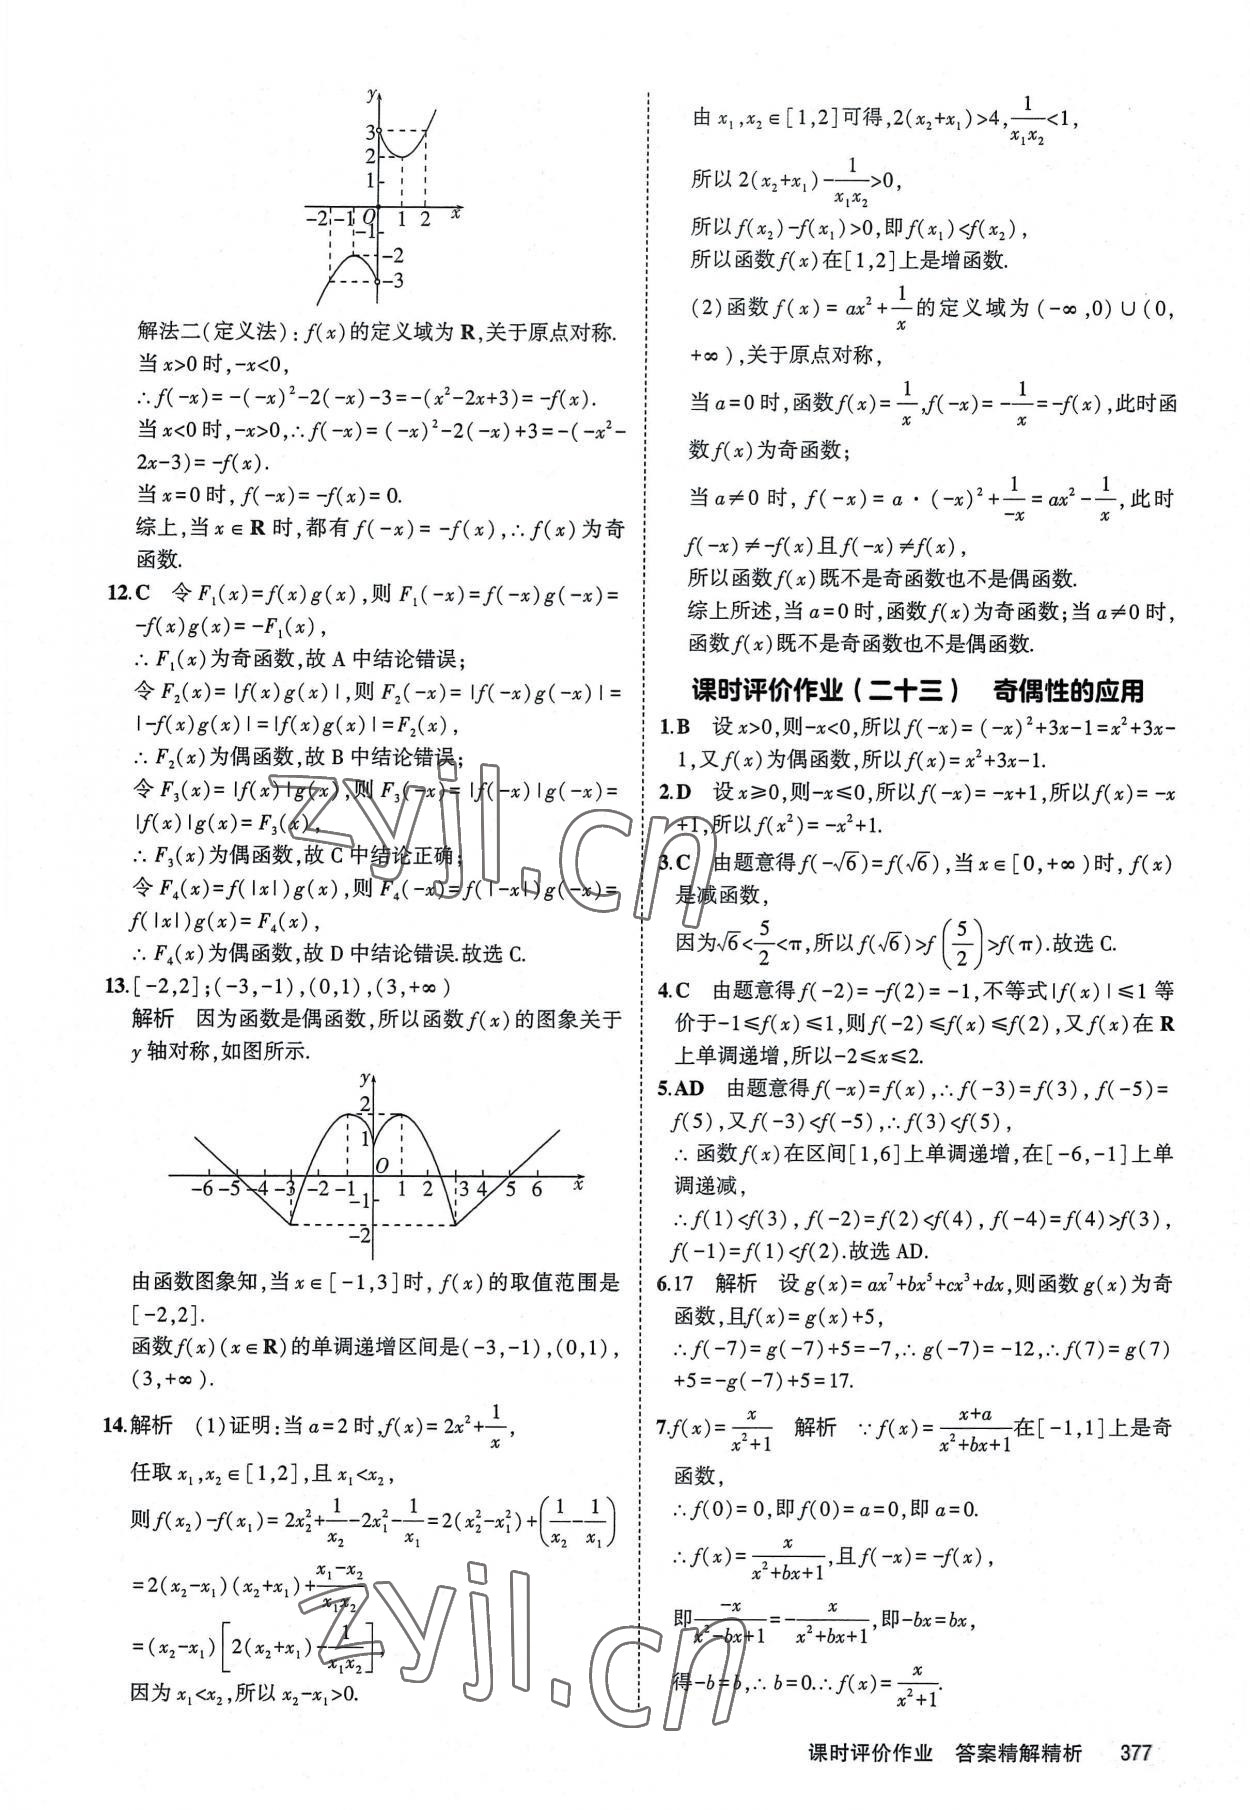 y
3
2
1
-2 -1 O 1 2 x
-1
-2
-3
解法二(定义法):f(x)的定义域为 R,关于原点对称.
当 x>0 时,-x<0,
∴f(-x)=-(-x)²-2(-x)-3=-(x²-2x+3)=-f(x).
当 x<0 时,-x>0,∴f(-x)=(-x)²-2(-x)+3=-(-x²-
2x-3)=-f(x).
当 x=0 时, f(-x)=-f(x)=0.
综上,当 x∈R 时,都有 f(-x)=-f(x),∴f(x)为奇
函数.
12.C 令 F₁(x)=f(x)g(x),则 F₁(-x)=f(-x)g(-x)=
-f(x)g(x)=-F₁(x),
∴F₁(x)为奇函数,故 A 中结论错误;
令 F₂(x)=|f(x)g(x)|,则 F₂(-x)=|f(-x)g(-x)|=
|-f(x)g(x)|=|f(x)g(x)|=F₂(x),
∴F₂(x)为偶函数,故 B 中结论错误;
令 F₃(x)=|f(x)|g(x),则 F₃(-x)=|f(-x)|g(-x)=
|f(x)|g(x)=F₃(x),
∴F₃(x)为偶函数,故 C 中结论正确;
令 F₄(x)=f(|x|)g(x),则 F₄(-x)=f(|-x|)g(-x)=
f(|x|)g(x)=F₄(x),
∴F₄(x)为偶函数,故 D 中结论错误.故选 C.
13.[-2,2];(-3,-1),(0,1),(3,+∞)
解析 因为函数是偶函数,所以函数 f(x)的图象关于
y 轴对称,如图所示.
y
2
1
O
-6 -5 -4 -3 -2 -1 1 2 3 4 5 6 x
-1
-2
由函数图象知,当 x∈[-1,3]时, f(x)的取值范围是
[-2,2].
函数 f(x)(x∈R)的单调递增区间是(-3,-1),(0,1),
(3,+∞).
14.解析 (1)证明:当 a=2 时,f(x)=2x²+1/x,
任取 x₁,x₂∈[1,2],且 x₁<x₂,
则 f(x₂)-f(x₁)=2x₂²+1/x₂-2x₁²-1/x₁=2(x₂²-x₁²)+(1/x₂-1/x₁)
=2(x₂-x₁)(x₂+x₁)+(x₁-x₂)/(x₁x₂)
=(x₂-x₁)[2(x₂+x₁)-1/(x₁x₂)],
因为 x₁<x₂,所以 x₂-x₁>0.
由 x₁,x₂∈[1,2]可得,2(x₂+x₁)>4,1/(x₁x₂)<1,
所以 2(x₂+x₁)-1/(x₁x₂)>0,
所以 f(x₂)-f(x₁)>0,即 f(x₁)<f(x₂),
所以函数 f(x)在[1,2]上是增函数.
(2)函数 f(x)=ax²+1/x的定义域为(-∞,0)∪(0,
+∞),关于原点对称,
当 a=0 时,函数 f(x)=1/x,f(-x)=-1/x=-f(x),此时函
数 f(x)为奇函数;
当 a≠0 时, f(-x)=a·(-x)²+1/(-x)=ax²-1/x,此时
f(-x)≠-f(x)且 f(-x)≠f(x),
所以函数 f(x)既不是奇函数也不是偶函数.
综上所述,当 a=0 时,函数 f(x)为奇函数;当 a≠0 时,
函数 f(x)既不是奇函数也不是偶函数.
课时评价作业(二十三) 奇偶性的应用
1.B 设 x>0,则-x<0,所以 f(-x)=(-x)²+3x-1=x²+3x-
1,又 f(x)为偶函数,所以 f(x)=x²+3x-1.
2.D 设 x≥0,则-x≤0,所以 f(-x)=-x+1,所以 f(x)=-x
+1,所以 f(x²)=-x²+1.
3.C 由题意得 f(-√6)=f(√6),当 x∈[0,+∞)时, f(x)
是减函数,
因为√6<5/2<π,所以 f(√6)>f(5/2)>f(π).故选 C.
4.C 由题意得 f(-2)=-f(2)=-1,不等式|f(x)|≤1 等
价于-1≤f(x)≤1,则 f(-2)≤f(x)≤f(2),又 f(x)在 R
上单调递增,所以-2≤x≤2.
5.AD 由题意得 f(-x)=f(x),∴f(-3)=f(3), f(-5)=
f(5),又 f(-3)<f(-5),∴f(3)<f(5),
∴函数 f(x)在区间[1,6]上单调递增,在[-6,-1]上单
调递减,
∴f(1)<f(3), f(-2)=f(2)<f(4), f(-4)=f(4)>f(3),
f(-1)=f(1)<f(2).故选 AD.
6.17 解析 设 g(x)=ax⁷+bx⁵+cx³+dx,则函数 g(x)为奇
函数,且f(x)=g(x)+5,
∴f(-7)=g(-7)+5=-7,∴g(-7)=-12,∴f(7)=g(7)
+5=-g(-7)+5=17.
7.f(x)=x/(x²+1) 解析 ∵f(x)=(x+a)/(x²+bx+1)在[-1,1]上是奇
函数,
∴f(0)=0,即 f(0)=a=0,即 a=0.
∴f(x)=x/(x²+bx+1),且 f(-x)=-f(x),
即(-x)/(x²-bx+1)=-x/(x²+bx+1),即-bx=bx,
得-b=b,∴b=0.∴f(x)=x/(x²+1).
课时评价作业 答案精解精析 377
zyjl.cn
zyjl.cn